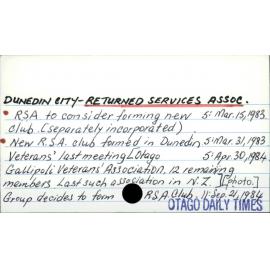 DUNEDIN CITY-RETURNED SERVICES ASSOC.
• RSA to consider forming new 5: Mar. 15, 1983
club (separately incorporated)
• New R.S.A. club formed in Dunedin 5: Mar. 31, 1983
Veterans' last meeting [Otago 5: Apr. 30, 1984
Gallipoli Veterans' Association, 12 remaining
members Last such association in N.Z.] [photo.]
Group decides to form R.S.A. Club, 11: Sep. 21, 1984
OTAGO DAILY TIMES